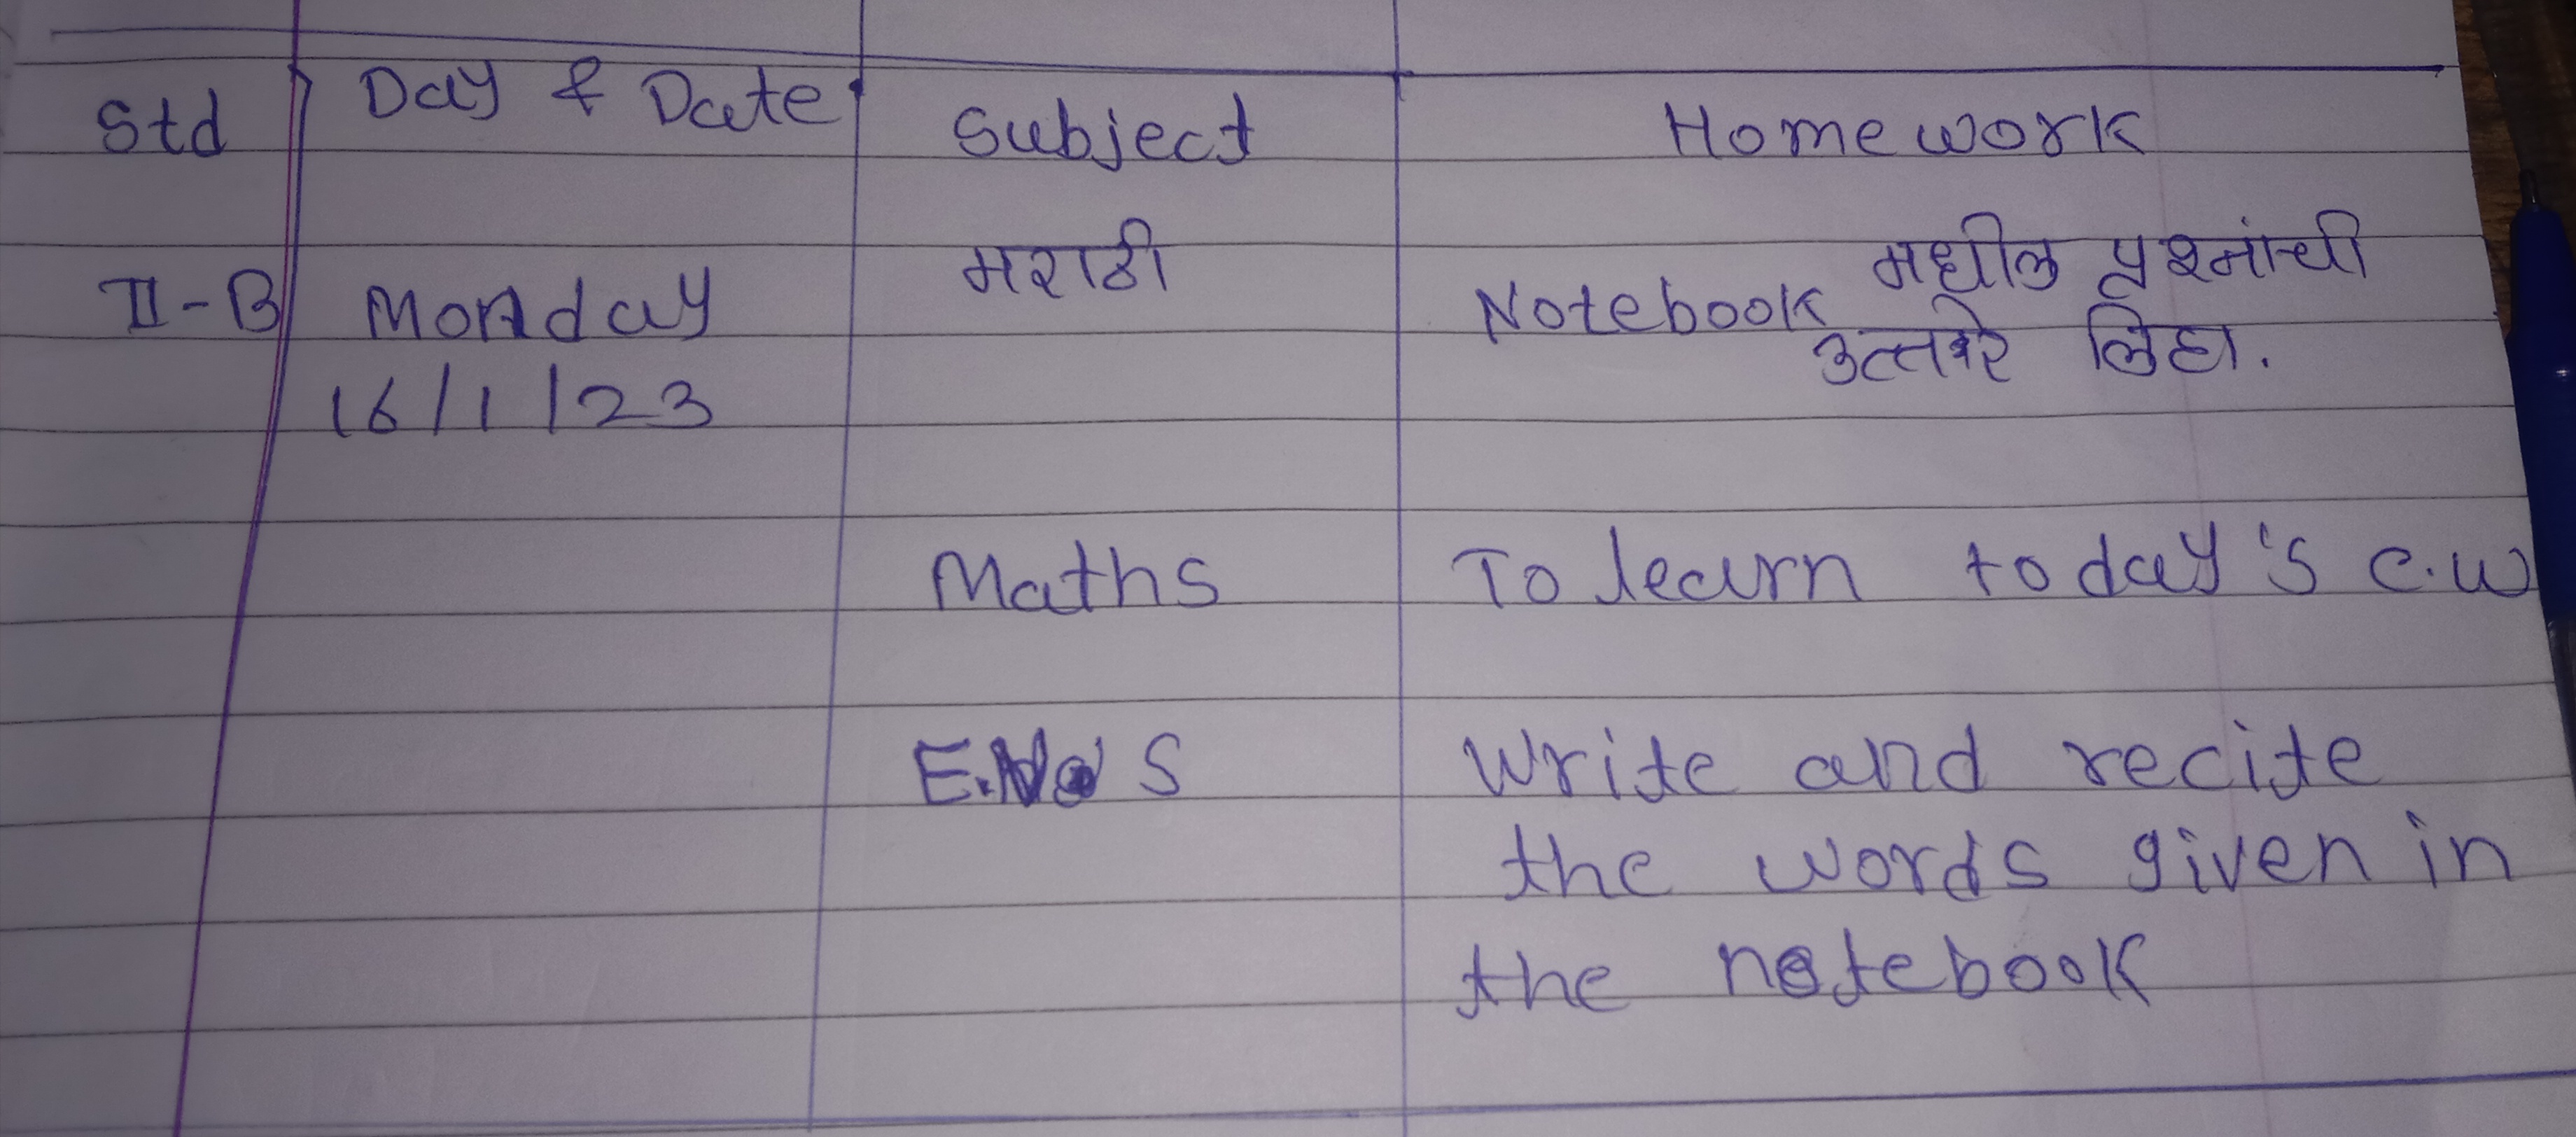 Std Day & Date Subject Homework
II-B Monday मराठी Notebook मधील प्रश्नांची
16/1/23 उत्तरे लिहा.
Maths To learn today's c.w
S Write and recite
the words given in
the notebook